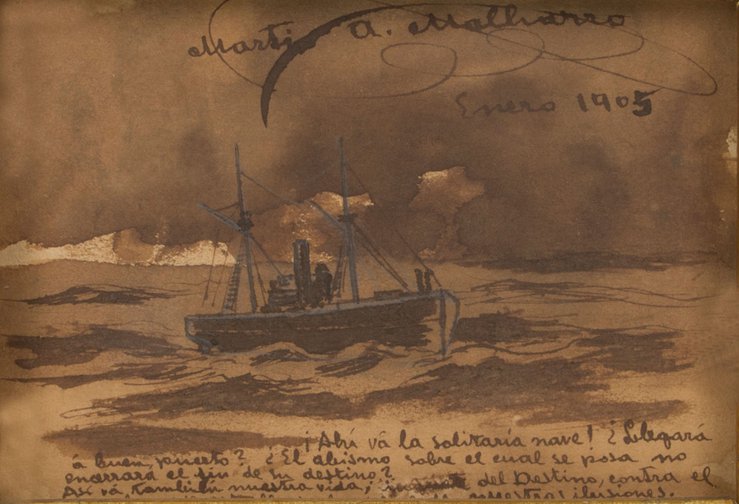 Martin A. Malharro
Enero 1905
¡Ahí vá la solitaria nave! ¿Llegará
á buen puerto? ¿El abismo sobre el cual se posa no
encerrará el fin de su destino?
Así vá, también nuestra vida, del Destino, contra el
nuestras ilusiones.